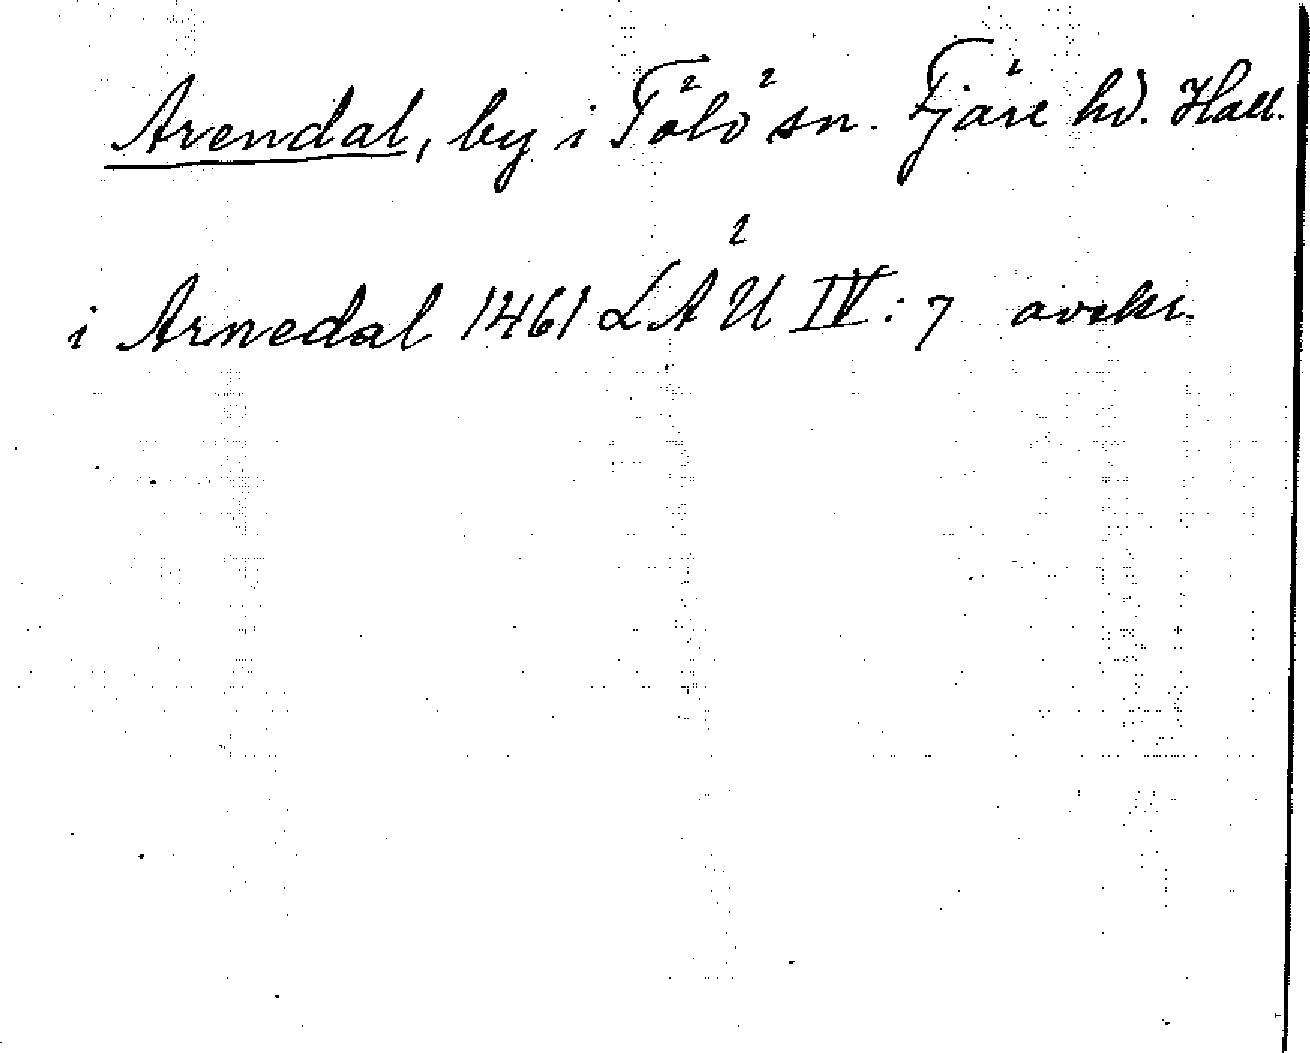 Arendal, by i Tölö sn. Fjäre hd. Hall.
i Arnedal 1461 LAÜ IV: 7 avskr.